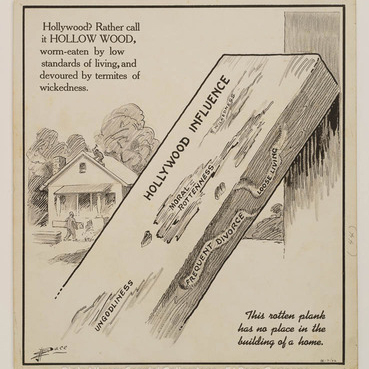 Hollywood? Rather call
it HOLLOW WOOD,
worm-eaten by low
standards of living, and
devoured by termites of
wickedness.
HOLLYWOOD INFLUENCE
MORAL
ROTTENNESS
LOOSE LIVING
FREQUENT DIVORCE
UNGODLINESS
This rotten plank
has no place in the
building of a home.